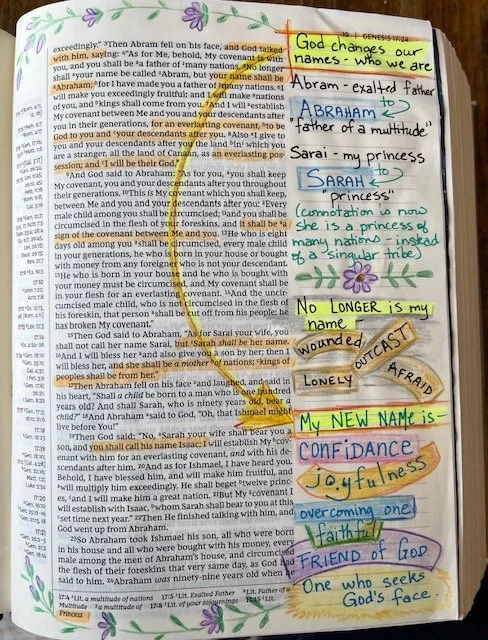 19 | GENESIS 17:24
exceedingly." ³Then Abram fell on his face, and God talked
with him, saying: ⁴"As for Me, behold, My covenant is with
you, and you shall be ᵃa father of ¹many nations. ⁵No longer
shall ᵃyour name be called ¹Abram, but your name shall be
²Abraham; ᵇfor I have made you a father of ³many nations. ⁶I
will make you exceedingly fruitful; and I will make ᵃnations
of you, and ᵇkings shall come from you. ⁷And I will ᵃestablish
My covenant between Me and you and your descendants after
you in their generations, for an everlasting covenant, ᵇto be
God to you and ᶜyour descendants after you. ⁸Also ᵃI give to
you and your descendants after you the land ᵇin¹ which you
are a stranger, all the land of Canaan, as an everlasting pos-
session; and ᶜI will be their God."
⁹And God said to Abraham: "As for you, ᵃyou shall keep
My covenant, you and your descendants after you throughout
their generations. ¹⁰This is My covenant which you shall keep,
between Me and you and your descendants after you: ᵃEvery
male child among you shall be circumcised; ¹¹and you shall be
circumcised in the flesh of your foreskins, and it shall be ᵃa
sign of the covenant between Me and you. ¹²He who is eight
days old among you ᵃshall be circumcised, every male child
in your generations, he who is born in your house or bought
with money from any foreigner who is not your descendant.
¹³He who is born in your house and he who is bought with
your money must be circumcised, and My covenant shall be
in your flesh for an everlasting covenant. ¹⁴And the uncir-
cumcised male child, who is not circumcised in the flesh of
his foreskin, that person ᵃshall be cut off from his people; he
has broken My covenant."
¹⁵Then God said to Abraham, "As for Sarai your wife, you
shall not call her name Sarai, but ¹Sarah shall be her name.
¹⁶And I will bless her ᵃand also give you a son by her; then I
will bless her, and she shall be a mother ᵇof nations; ᶜkings of
peoples shall be from her."
¹⁷Then Abraham fell on his face ᵃand laughed, and said in
his heart, "Shall a child be born to a man who is one hundred
years old? And shall Sarah, who is ninety years old, bear a
child?" ¹⁸And Abraham ᵃsaid to God, "Oh, that Ishmael might
live before You!"
¹⁹Then God said: "No, ᵃSarah your wife shall bear you a
son, and you shall call his name Isaac; I will establish My ᵇcov-
enant with him for an everlasting covenant, and with his de-
scendants after him. ²⁰And as for Ishmael, I have heard you.
Behold, I have blessed him, and will make him fruitful, and
ᵃwill multiply him exceedingly. He shall beget ᵇtwelve princ-
es, ᶜand I will make him a great nation. ²¹But My ᵃcovenant I
will establish with Isaac, ᵇwhom Sarah shall bear to you at this
ᶜset time next year." ²²Then He finished talking with him, and
God went up from Abraham.
²³So Abraham took Ishmael his son, all who were born
in his house and all who were bought with his money, every
male among the men of Abraham's house, and circumcised
the flesh of their foreskins that very same day, as God had
said to him. ²⁴Abraham was ninety-nine years old when he
17:4 ¹Lit. a multitude of nations 17:5 ¹Lit. Exalted Father ²Lit. Father of a
Multitude ³a multitude of 17:8 ¹Lit. of your sojournings 17:15 ¹Lit.
Princess
God changes our
names - who we are
Abram - exalted father
to
ABRAHAM
"father of a multitude"
Sarai - my princess
to
SARAH
princess"
(connotation is now
she is a princess of
many nations - instead
of a "singular tribe)
No LONGER is my
name
wounded
OUTCAST
LONELY
AFRAID
My NEW NAME is-
CONFIDANCE
joyfulness
overcoming one
faithful
FRIEND OF GOD
One who seeks
God's face.